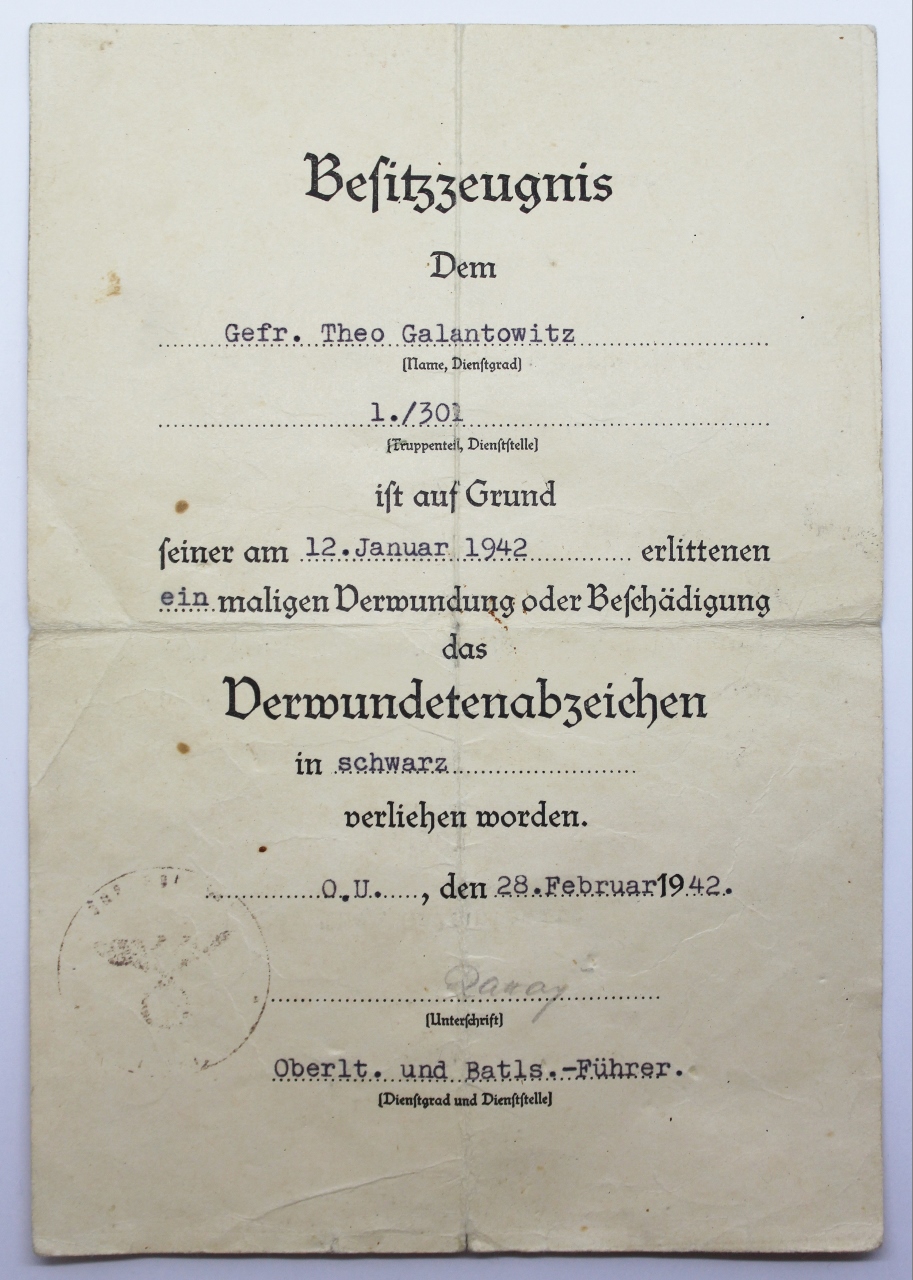 Besitzzeugnis
Dem
Gefr. Theo Galantowitz
(Name, Dienstgrad)
1./301
(Truppenteil, Dienststelle)
ist auf Grund
seiner am 12.Januar 1942 erlittenen
ein maligen Verwundung oder Beschädigung
das
Verwundetenabzeichen
in schwarz
verliehen worden.
O.U. , den 28.Februar 1942.
(Unterschrift)
Oberlt. und Batls.-Führer.
(Dienstgrad und Dienststelle)